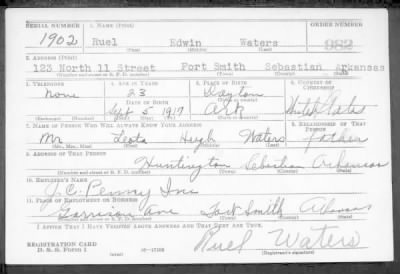 SERIAL NUMBER 1. NAME (Print) ORDER NUMBER
1902 Ruel Edwin Waters 982
(First) (Middle) (Last)
2. ADDRESS (Print)
123 North 11 Street Fort Smith Sebastian Arkansas
(Number and street or R. F. D. number) (Town) (County) (State)
3. TELEPHONE 4. AGE IN YEARS 5. PLACE OF BIRTH 6. COUNTRY OF CITIZENSHIP
None 23 Dayton
DATE OF BIRTH
Sept 2 1917 Ark United States
(Mo.) (Day) (Yr.) (State or country)
7. NAME OF PERSON WHO WILL ALWAYS KNOW YOUR ADDRESS 8. RELATIONSHIP OF THAT PERSON
Mr Leota Hugh Waters Father
(Mr., Mrs., Miss) (First) (Middle) (Last)
9. ADDRESS OF THAT PERSON
Huntington Sebastian Arkansas
(Number and street or R. F. D. number) (Town) (County) (State)
10. EMPLOYER'S NAME
J. C. Penny Inc
11. PLACE OF EMPLOYMENT OR BUSINESS
Garrison Ave Fort Smith Arkansas
(Number and street or R. F. D. number) (Town) (County) (State)
I AFFIRM THAT I HAVE VERIFIED ABOVE ANSWERS AND THAT THEY ARE TRUE.
REGISTRATION CARD
D. S. S. Form 1
Ruel Waters
(Registrant's signature)